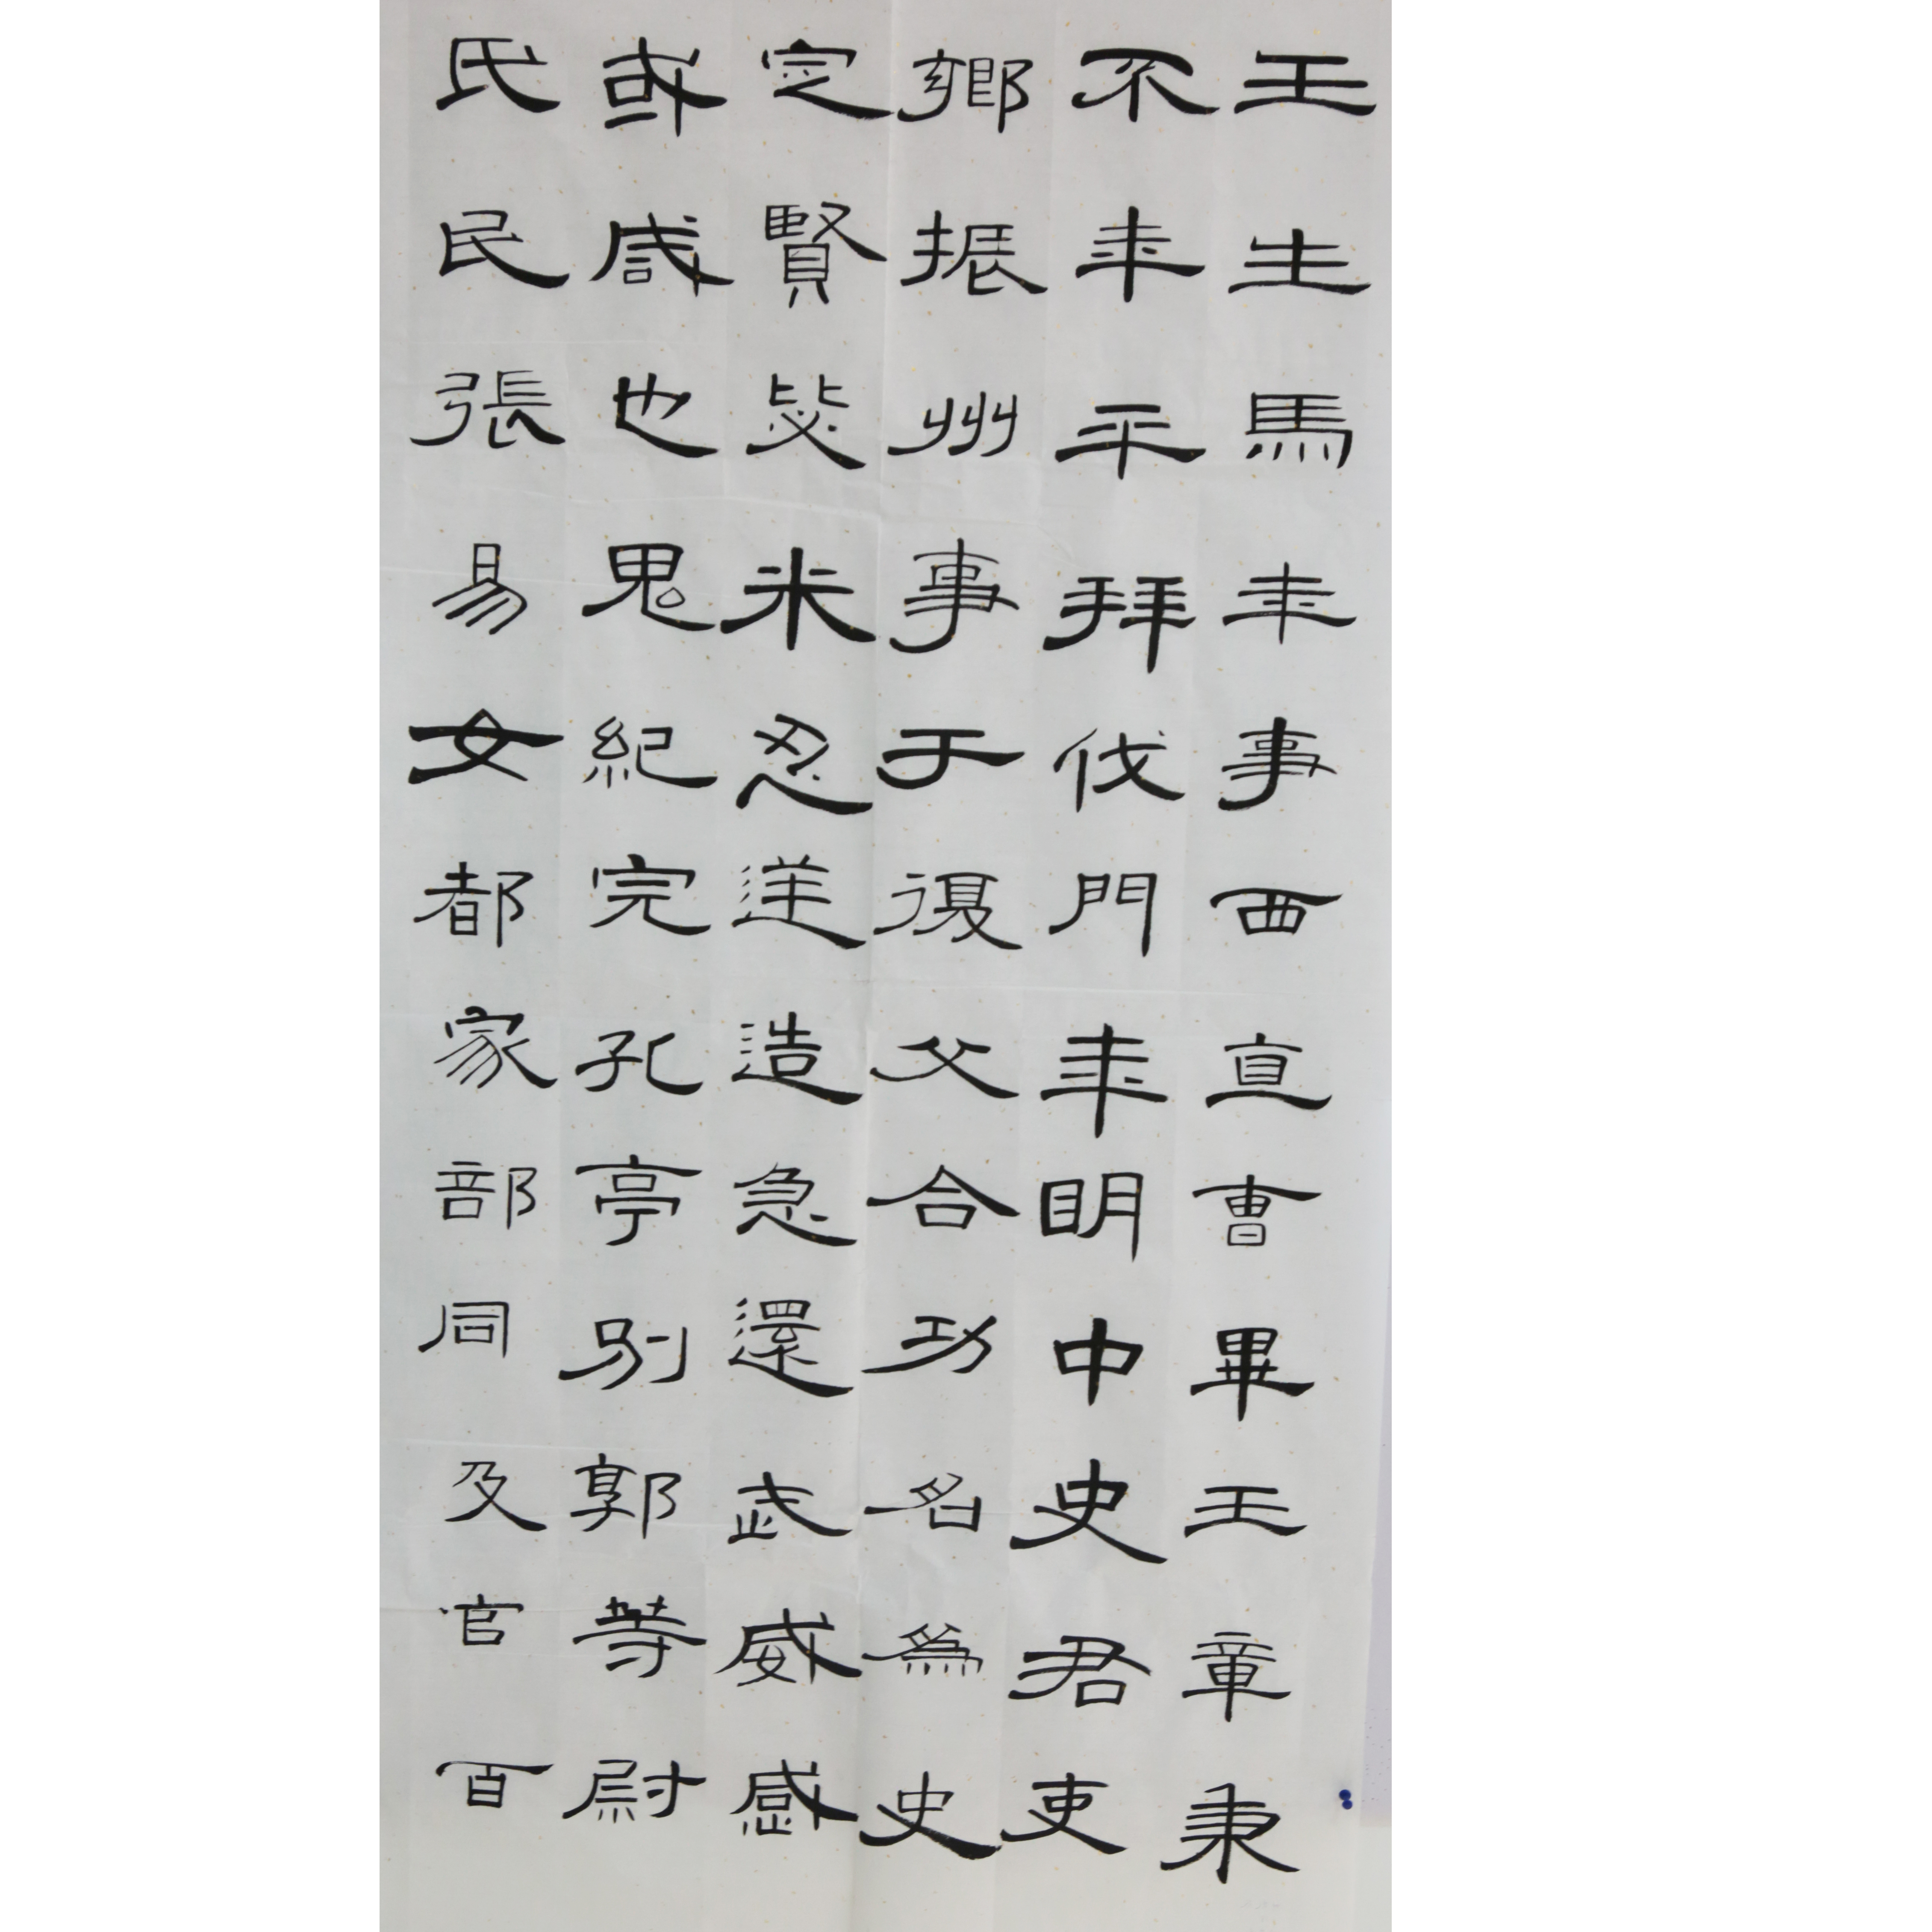 王生馬年事西直曹畢王章秉
不年平拜伐門年明中史君吏
鄉振州事于復父合功名為史
定賢毖米忍送造急還武威感
或咸也鬼紀完孔亭別郭等尉
氏民張易女都家部同及官百